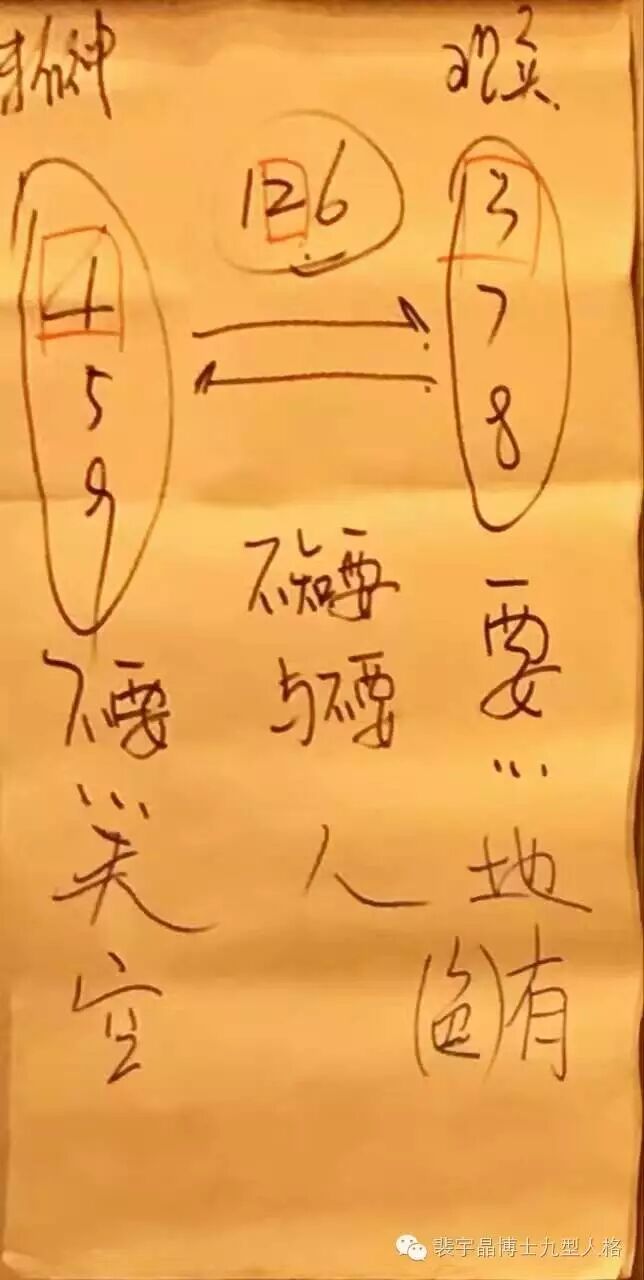 精神
现实
126
4
5
9
3
7
8
不知要
与不要
不要…
要…
天
人
地
空
(色)有
裴宇晶博士九型人格